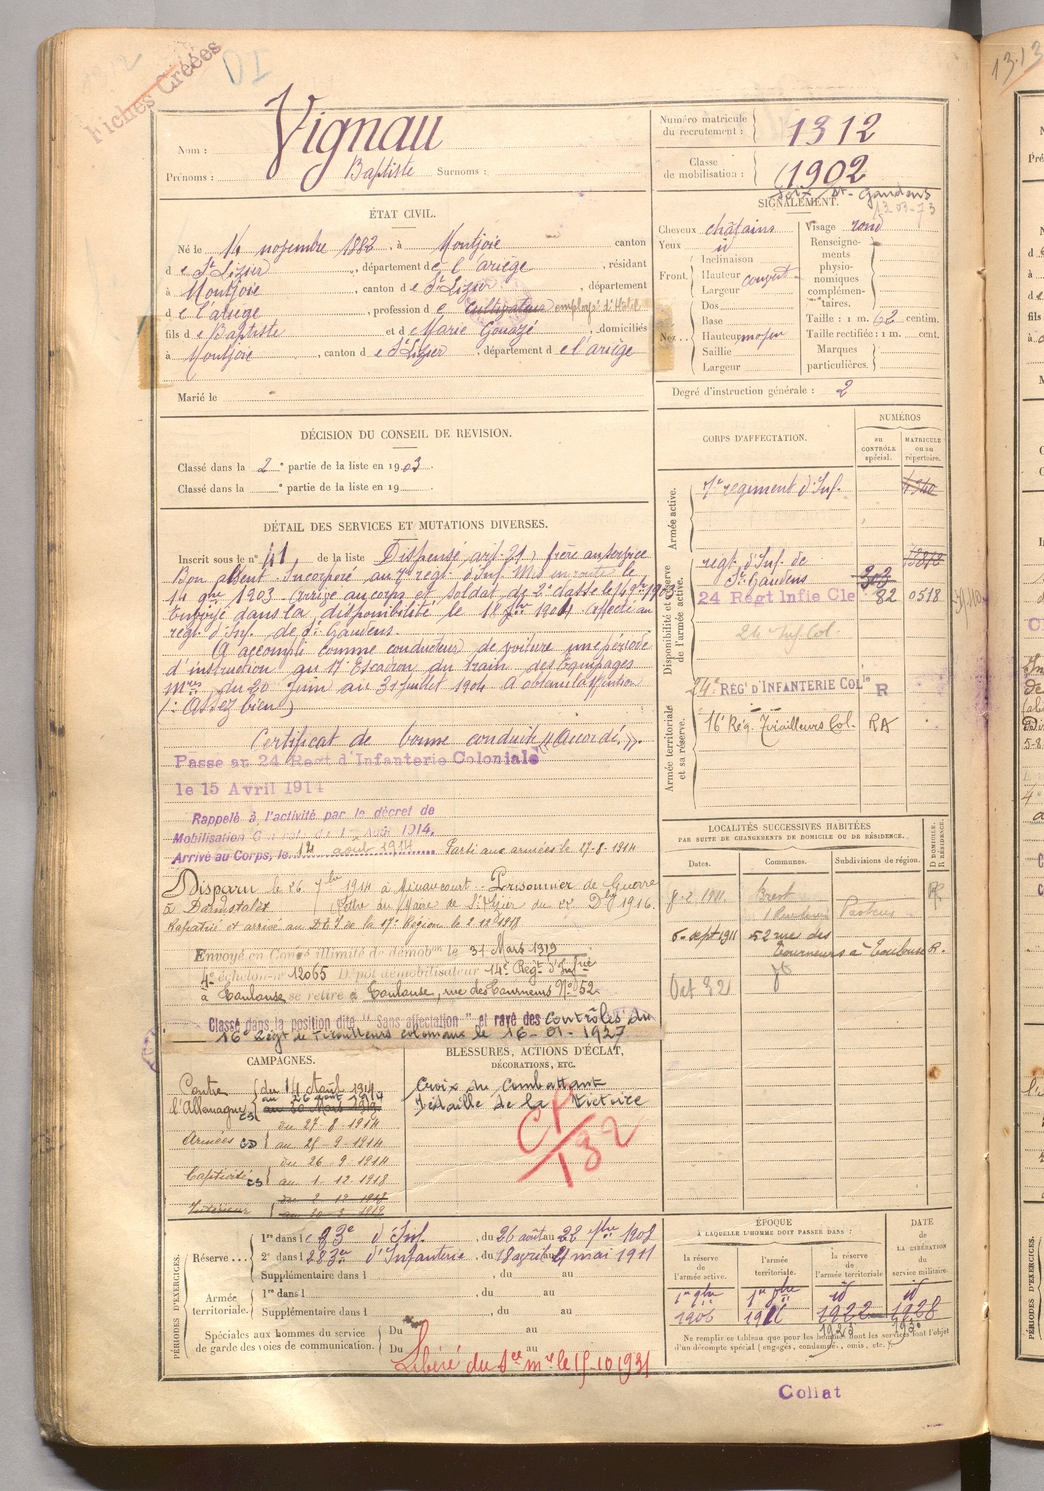 Fiches Créées
DI
Nom : Vignau
Prénoms : Baptiste Surnoms :
Numéro matricule du recrutement : 1312
Classe de mobilisation : 1902
St-Gaudens
ÉTAT CIVIL.
Né le 14 novembre 1882, à Montjoie canton
de St Lizier, département de l'ariège, résidant
à Montjoie, canton de St Lizier, département
de l'ariège, profession de cultivateur employé d'Hôtel
fils de Baptiste et de Marie Gouazé, domiciliés
à Montjoie, canton de St Lizier, département de l'ariège
Marié le
SIGNALEMENT.
13-03-73
Cheveux châtains
Yeux id
Front. Inclinaison
Hauteur couvert
Largeur
Nez... Dos
Base
Hauteur moyen
Saillie
Largeur
Visage rond
Renseignements physionomiques complémentaires.
Taille : 1 m. 62 centim.
Taille rectifiée : 1 m. cent.
Marques particulières.
Degré d'instruction générale : 2
DÉCISION DU CONSEIL DE REVISION.
Classé dans la 2e partie de la liste en 1903.
Classé dans la e partie de la liste en 19
DÉTAIL DES SERVICES ET MUTATIONS DIVERSES.
Inscrit sous le n° 41 de la liste Dispensé art. 21, frère au service
Bon absent. Incorporé au 7e régt. d'Inf. Mis en route le
14 9bre 1903. Arrivé au corps et soldat de 2e classe le 14 9bre 1903
Envoyé dans la disponibilité le 18 1904 affecté au
régt. d'Inf. de St Gaudens.
A accompli comme conducteur de voiture une période
d'instruction au 17e Escadron du train des Equipages
Mres, du 20 Juin au 31 juillet 1904 A obtenu la Mention
(: Assez bien)
Certificat de bonne conduite « Accordé. ».
Passé au 24 Regt d'Infanterie Coloniale
le 15 Avril 1914
Rappelé à l'activité par le décret de
Mobilisation Générale du 1er Août 1914.
Arrivé au Corps, le 14 août 1914 Parti aux armées le 27-8-1914
Disparu le 26 7bre 1914 à Minaucourt. Prisonnier de Guerre
à Darmstadt (Lettre du Maire de St Lizier du 22 Dbre 1916.
Rapatrié et arrivé au D.E.I de la 17e Région le 2 12 1918
Envoyé en Congé illimité de démobon le 31 Mars 1919
4e échelon n° 12065 Dépôt démobilisateur 14e Régt d'Infrie
à Toulouse se retire à Toulouse, rue des Tourneurs N° 52
Classé dans la position dite "Sans affectation" et rayé des contrôles du
16e Régt de Tirailleurs coloniaux le 16-01-1927
CORPS D'AFFECTATION.
NUMÉROS
au CONTRÔLE spécial.
MATRICULE ou au répertoire.
Armée active.
7e régiment d'Inf.
Disponibilité et réserve de l'armée active.
régt. d'Inf. de St. Gaudens
24 Régt Infie Cle 82 0518
24 Inf Col.
24e RÉGt D'INFANTERIE COLle R
Armée territoriale et sa réserve.
16e Rég. Tirailleurs Col. RA
LOCALITÉS SUCCESSIVES HABITÉES
PAR SUITE DE CHANGEMENTS DE DOMICILE OU DE RÉSIDENCE.
Dates. Communes. Subdivisions de région. D DOMICILE. R RÉSIDENCE.
8-2-1911. Brest R.
6-sept 1911 52 rue des Tourneurs à Toulouse R.
CAMPAGNES.
Contre l'Allemagne du 14 Août 1914
au 26 août 1914
au 30 Mars 1919
Armées CD du 27-8-1914
au 25-9-1914
Captivité CS du 26-9-1914
au 1-12-1918
Intérieur du 2-12-1918
au 30-3-1919
BLESSURES, ACTIONS D'ÉCLAT,
DÉCORATIONS, ETC.
Croix du Combattant
Médaille de la Victoire
PÉRIODES D'EXERCICES.
Réserve... 1re dans le 83e d'Inf., du 26 août au 22 7bre 1908
2e dans le 283e d'Infanterie, du 18 avril au 4 mai 1911
Supplémentaire dans l , du au
Armée territoriale. 1re dans l , du au
Supplémentaire dans l , du au
Spéciales aux hommes du service de garde des voies de communication. Du au
Du au
Libéré du sce mre le 15-10-1931
ÉPOQUE
À LAQUELLE L'HOMME DOIT PASSER DANS :
la réserve de l'armée active. l'armée territoriale. la réserve de l'armée territoriale
DATE DE LA LIBÉRATION du service militaire.
1er 9bre 1906 1er 9bre 1916 id 1922 id 1928
1923 1930
Ne remplir ce tableau que pour les hommes dont les services font l'objet
d'un décompte spécial (engagés, condamnés, omis, etc.).
Collat